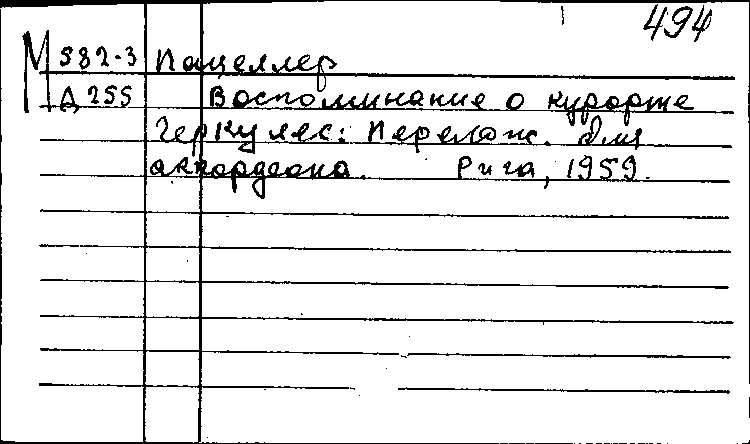 494
М 582-3 Пацеллер
Д 255 Воспоминание о курорте
Геркулес: Перелож. для
аккордеона. Рига, 1959.